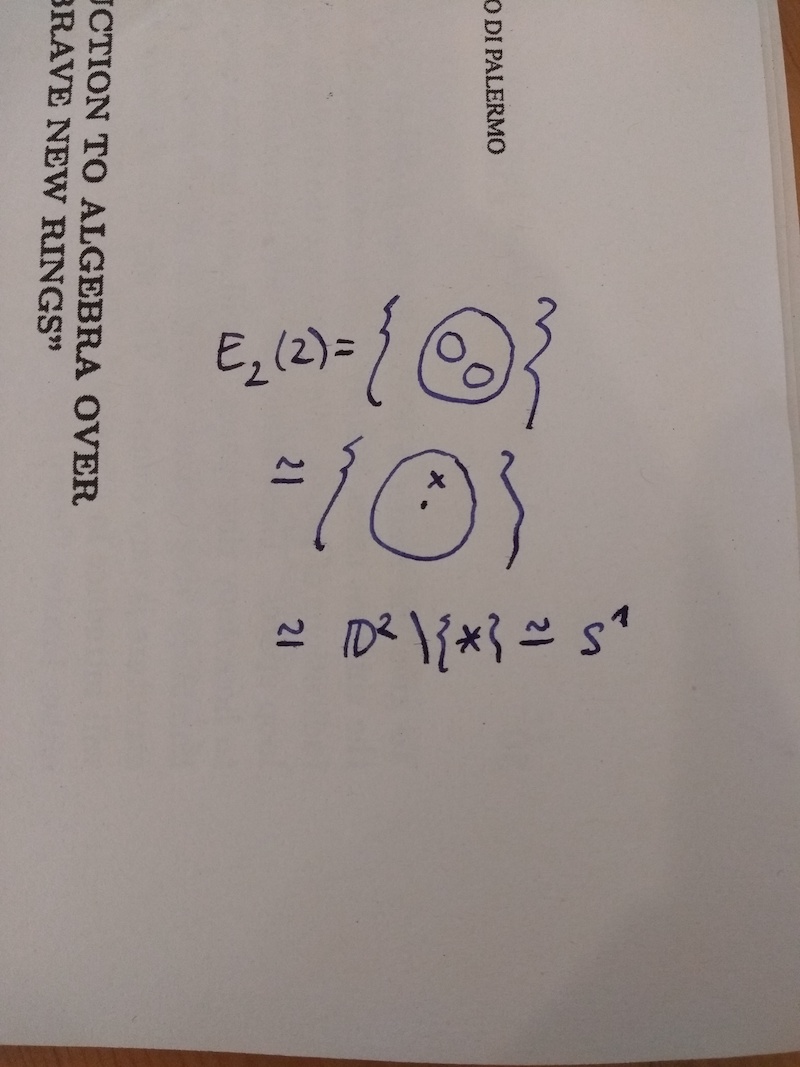 O DI PALERMO
UCTION TO ALGEBRA OVER
BRAVE NEW RINGS”
E₂(2) = { }
≃ { x . }
≃ D² \ {*} ≃ S¹